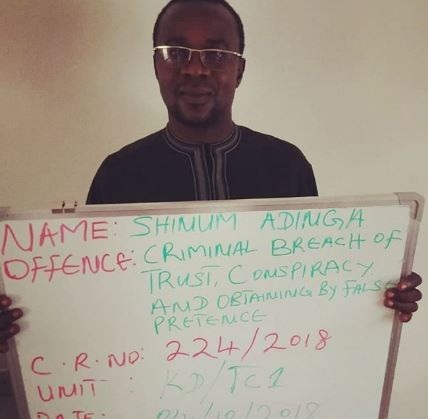 NAME: SHIMUM ADINGA
OFFENCE: CRIMINAL BREACH OF
TRUST, CONSPIRACY
AND OBTAINING BY FALSE
PRETENCE
C.R.NO: 224/2018
UNIT : KD/TC1
DATE: 04/10/2018